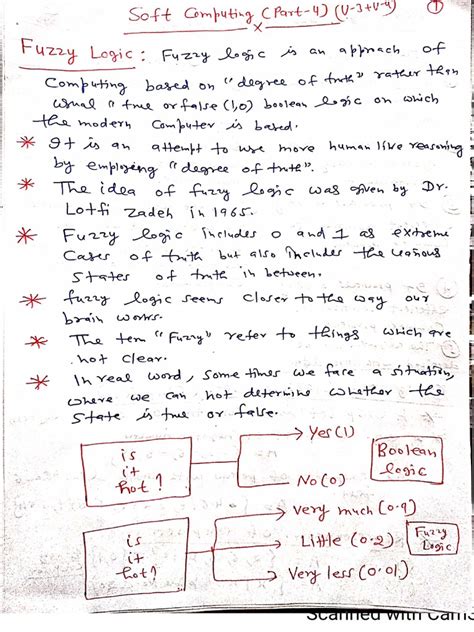 Soft Computing (Part-4) (U-3+U-4)
1
Fuzzy Logic : Fuzzy logic is an approach of
Computing based on "degree of truth" rather than
usual "true or false (1,0) boolean logic on which
the modern Computer is based.
* It is an attempt to use more human like reasoning
by employing "degree of truth".
* The idea of fuzzy logic was given by Dr.
Lotfi Zadeh in 1965.
* Fuzzy logic includes 0 and 1 as extreme
Cases of truth but also includes the various
States of truth in between.
* fuzzy logic seems closer to the way our
brain works.
* The term "Fuzzy" refer to things which are
not clear.
* In real word, some times we face a situation,
where we can not determine whether the
State is true or false.
is
it
hot ?
Yes (1)
No (0)
Boolean
logic
is
it
hot ?
very much (0.9)
Little (0.2)
Very less (0.01)
Fuzzy
Logic
Scanned with Cams